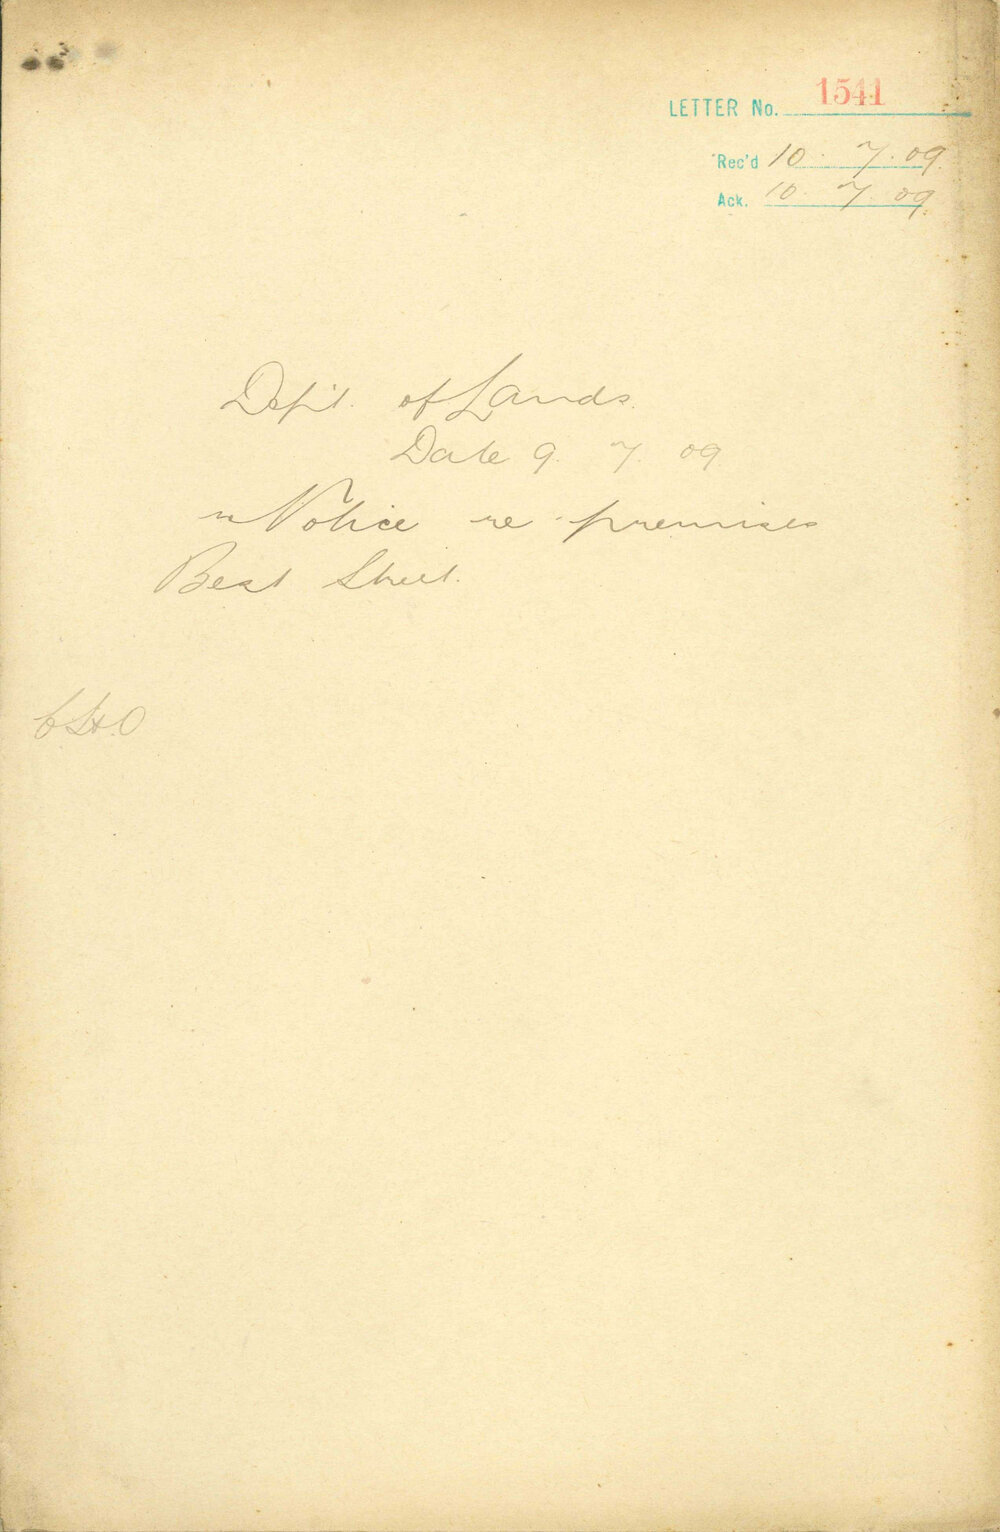 LETTER No. 1541
Rec'd 10. 7. 09.
Ack. 10. 7. 09.
Dept. of Lands.
Date 9. 7. 09
Notice re premises
Best Street.